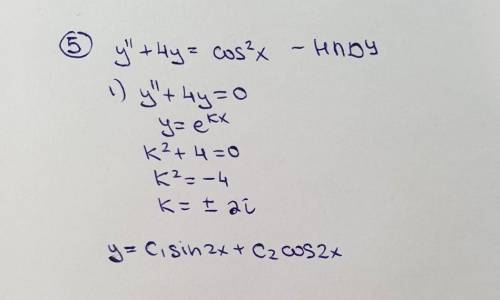 5 y'' + 4y = cos²x – НЛДУ
1) y'' + 4y = 0
y = e^{kx}
k² + 4 = 0
k² = -4
k = ± 2i
y = C₁sin2x + C₂cos2x